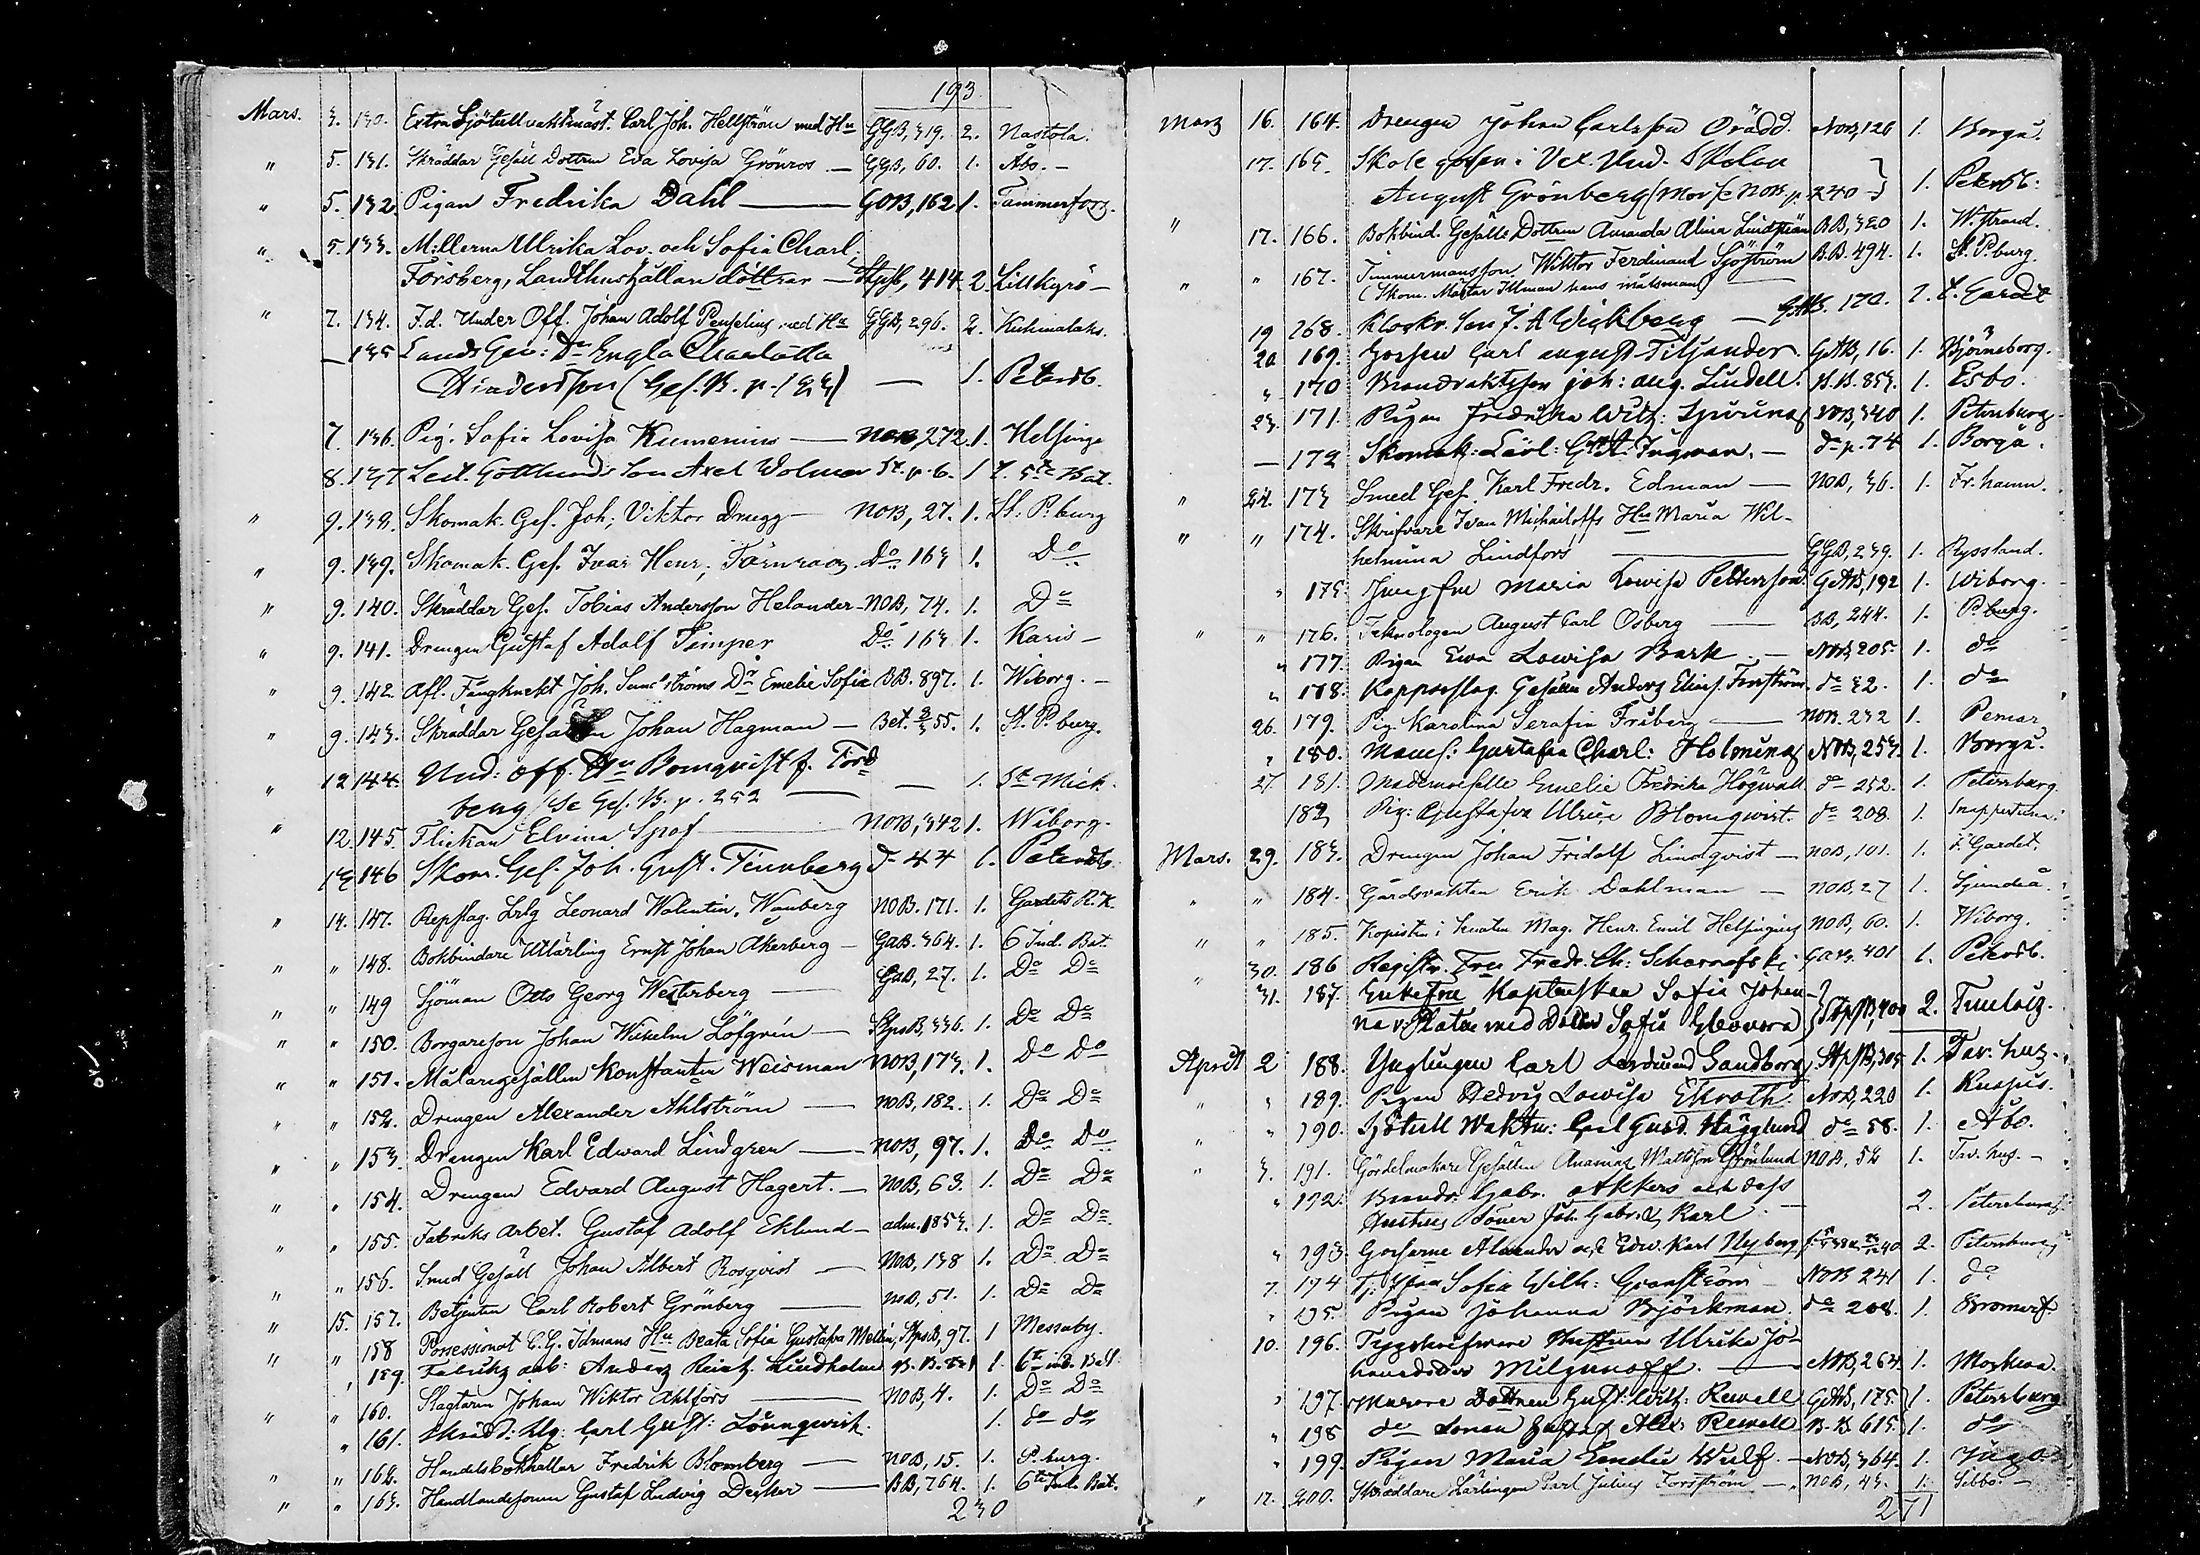 193
Mars. 3. 130. Extra Sjötullvaktmäst. Carl Joh. Hellström med Hu GGB, 319. 2. Nastola.
" 5. 131. Skräddar Gesäll Dottren Eva Lovisa Grönros — GGB, 60. 1. Åbo. —
" 5. 132 Pigan Fredrika Dahl — GOB, 162 1. Tammerfors.
" 5. 133. M:llerna Ulrika Lov. och Sofia Charl.
Forsberg, Landthushållare döttrar — 414. 2. Lillkyro —
" 7. 134. F.d. Under Off. Johan Adolf med Hu GGB, 296. 2.
— 135 Dr Engla Charlotta
(Gef. B. p. 133) — 1. Petersb.
7. 136. Pig. Sofia Lovisa Kumenius — NOB, 272. 1. Helsinge
8. 137 Gottlunds Son Axel Wolmar St. p. 6. 1 t. 5te Bat.
" 9. 138. Skomak. Ges. Joh. Viktor Drugg — NOB, 27. 1. St. P.burg
" 9. 139. Skomak. Ges. Ivar Henr. Törnroos. Do 163 1. Do
" 9. 140. Skräddar Ges. Tobias Andersson Helander — NOB, 74. 1. Do
" 9. 141. Drengen Gustaf Adolf Timper Do 163 1. Karis —
" 9. 142. Afl. Fångknekt Joh. Sundströms Dr Emelie Sofia BB. 897. 1. Wiborg. —
" 9. 143. Skräddar Gesällen Johan Hagman — Bet. 55. 1. St. P.burg.
" 12 144. Und: Off. Hu Bomqvist f. Tord
berg (Se Gef. B. p. 252 — — 1. St Mich.
" 12. 145. Flickan Elvina Spof — NOB, 342 1. Wiborg.
13 146 Skom. Ges. Joh. Gust. Finnberg do 44 1. Petersb.
" 14. 147. Repslag. Lrlg Leonard Walentin Wanberg NOB. 171. 1. Gardets R.K.
" " 148. Bokbindare Utlärling Ernst Johan Åkerberg — GAB. 364. 1. 6 Ind. Bat.
" " 149 Sjöman Otto Georg Westerberg — GAB, 27. 1. Do Do
" " 150. Borgareson Johan Wilhelm Löfgrén — StpsB, 336. 1. Do Do
" " 151. Målaregesällen Konstantin Weisman NOB, 173. 1. Do Do
" " 152. Drengen Alexander Ahlström — NOB, 182. 1. Do Do
" " 153. Drengen Karl Edward Lindgren — NOB, 97. 1. Do Do
" " 154. Drengen Edvard August Hagert. — NOB, 63. 1. Do Do
" " 155. Fabriks Arbet. Gustaf Adolf Eklund — adm. 1853. 1. Do Do
" " 156. Smed Gesäll Johan Albert Rosqvist — NOB, 138 1. Do Do
" 15. 157. Betjenten Carl Robert Grönberg — NOB, 51. 1. Do Do
" " 158 Possessionat C. G. Idmans Hu Beata Sofia Gustafva Melin, StpsB, 97. 1 Messuby.
" 159. Fabriks arb: Anders Lindholm B.B. 1. 6te ind. Bat.
" " 160. Slagtaren Johan Wiktor Ahlfors — NOB, 4. 1. Do Do
" 161. Skrädd: Llg: Carl Gust: Lönnqwist. 1. do do
" " 162. Handelsbokhållar Fredrik Blomberg — NOB, 15. 1. P.burg.
" " 163. Handlandesonen Gustaf Ludvig Decker — BB, 764. 1. 6te Ind. Bat.
230
Mars 16. 164. Drengen Johan Carlsson Orädd. NOB, 126 1. Borgå.
17. 165. Skole gossen i Vex. Und. Skolan
August Grönberg (Mor se NOB p. 240 —) 1. Petersb:
" 17. 166. Bokbind. Gesälls Dottren Amanda Alina Lindström BB, 320 1. W.strand.
" " 167. Timmermansson Wiktor Ferdinand Sjöström B.B. 494. 1. St. P.burg.
(Skom. Mästar Illman hans målsman)
19 268. Klockr. Son J. A Wickberg — GAB. 170. 1. t. Gardet
20 169. Gossen Carl August Titjander. GAB, 16. 1. Björneborg.
" 170 Brandvaktsson Joh: Aug. Lindell. B.B. 853. 1. Esbo.
23. 171. Pigan Fredrika Wilh: NOB, 340 1. Petersburg
— 172 Skomak: Lärl: G. A. Ingman. — do p. 74 1. Borgå.
" 24. 173 Smed Ges. Karl Fredr. Edman — NOB, 36. 1. Fr.hamn.
" " 174. Skrifvare Ivan Michailoffs Hu Maria Wil-
helmina Lindfors — GGB, 239. 1. Ryssland.
" 175. Jungfru Maria Lowisa Pettersson. GAB, 192 1. Wiborg.
" " 176. Teknologen August Carl Osberg — BB, 244. 1. P.burg.
" 177. Pigan Ewa Lowisa Bark. — NOB 205. 1. do
" 178. Kopparslag. Gesällen Anders Elias Forsström do 32. 1. do
26. 179. Pig. Karolina Serafia Friberg — NOB. 232 1. Pemar
" 180. Mams: Gustafva Charl: Holming NOB, 253. 1. Borgå.
27 181. Mademoiselle Emelie Fredrika Högwall do 252. 1. Petersburg
182 Pig: Gustafva Ulrica Blomqwist. do 208. 1. Snappertuna.
Mars. 29. 183. Drengen Johan Fridolf Lindqvist — NOB, 101. 1. t. Gardet.
" " 184. Gårdsvakten Erik Dahlman — NOB, 27 1. Sjundeå.
" " 185. Kopisten i Senaten Mag. Henr. Emil Helsingius NOB, 60. 1. Wiborg.
" 30. 186 Registr. Fru Fredr. Ch: GAB, 401 1. Petersb.
" 31. 187. Enkefru Kaptenskan Sofia Johan-
na v. Platen med Dottren Sofia Eleonora StpsB, 400 2.
April 2 188. Ynglingen Carl Ferdinand Sandborg StpsB, 305 1. Tav. hus.
" " 189. Pigan Hedvig Lowisa Ekroth NOB, 220 1. Kuopio.
" " 190. Sjötull Waktm: Carl Gust. Hägglund do 58. 1. Åbo.
" 3. 191. Gördelmakare Gesällen Ananias Mattsson Grönlund NOB, 52 1. Tav. hus. —
" 192. Brandv. Gabr. Akkers och dess
Hustrus Söner Joh. Gabr. & Karl. — 2. Petersburg.
" 193 Gossarne Alexander och Edw. Karl Nyberg 2. Petersburg
7. 194 Sofia Wilh: Granström — NOB 241 1. do
" 195. Pigan Johanna Björkman. do 208. 1. Bromarf.
10. 196. Tygskrifvare Hustrun Ulrika Jo-
hansdotter Milgunoff. — NOB, 264. 1. Moskwa.
" 197. Murare Dottren Gust: Wilh: Rewell GAB, 175. 1. Petersburg
" 198 do Sonen Gustaf Alex: Rewell B.B. 615. 1. do
" 199. Pigan Maria Emelie Wulf. — NOB, 364. 1. Ingå
" 17. 200. Skräddare Lärlingen Carl Julius Forsström — NOB, 43. 1. Sibbo. —
271